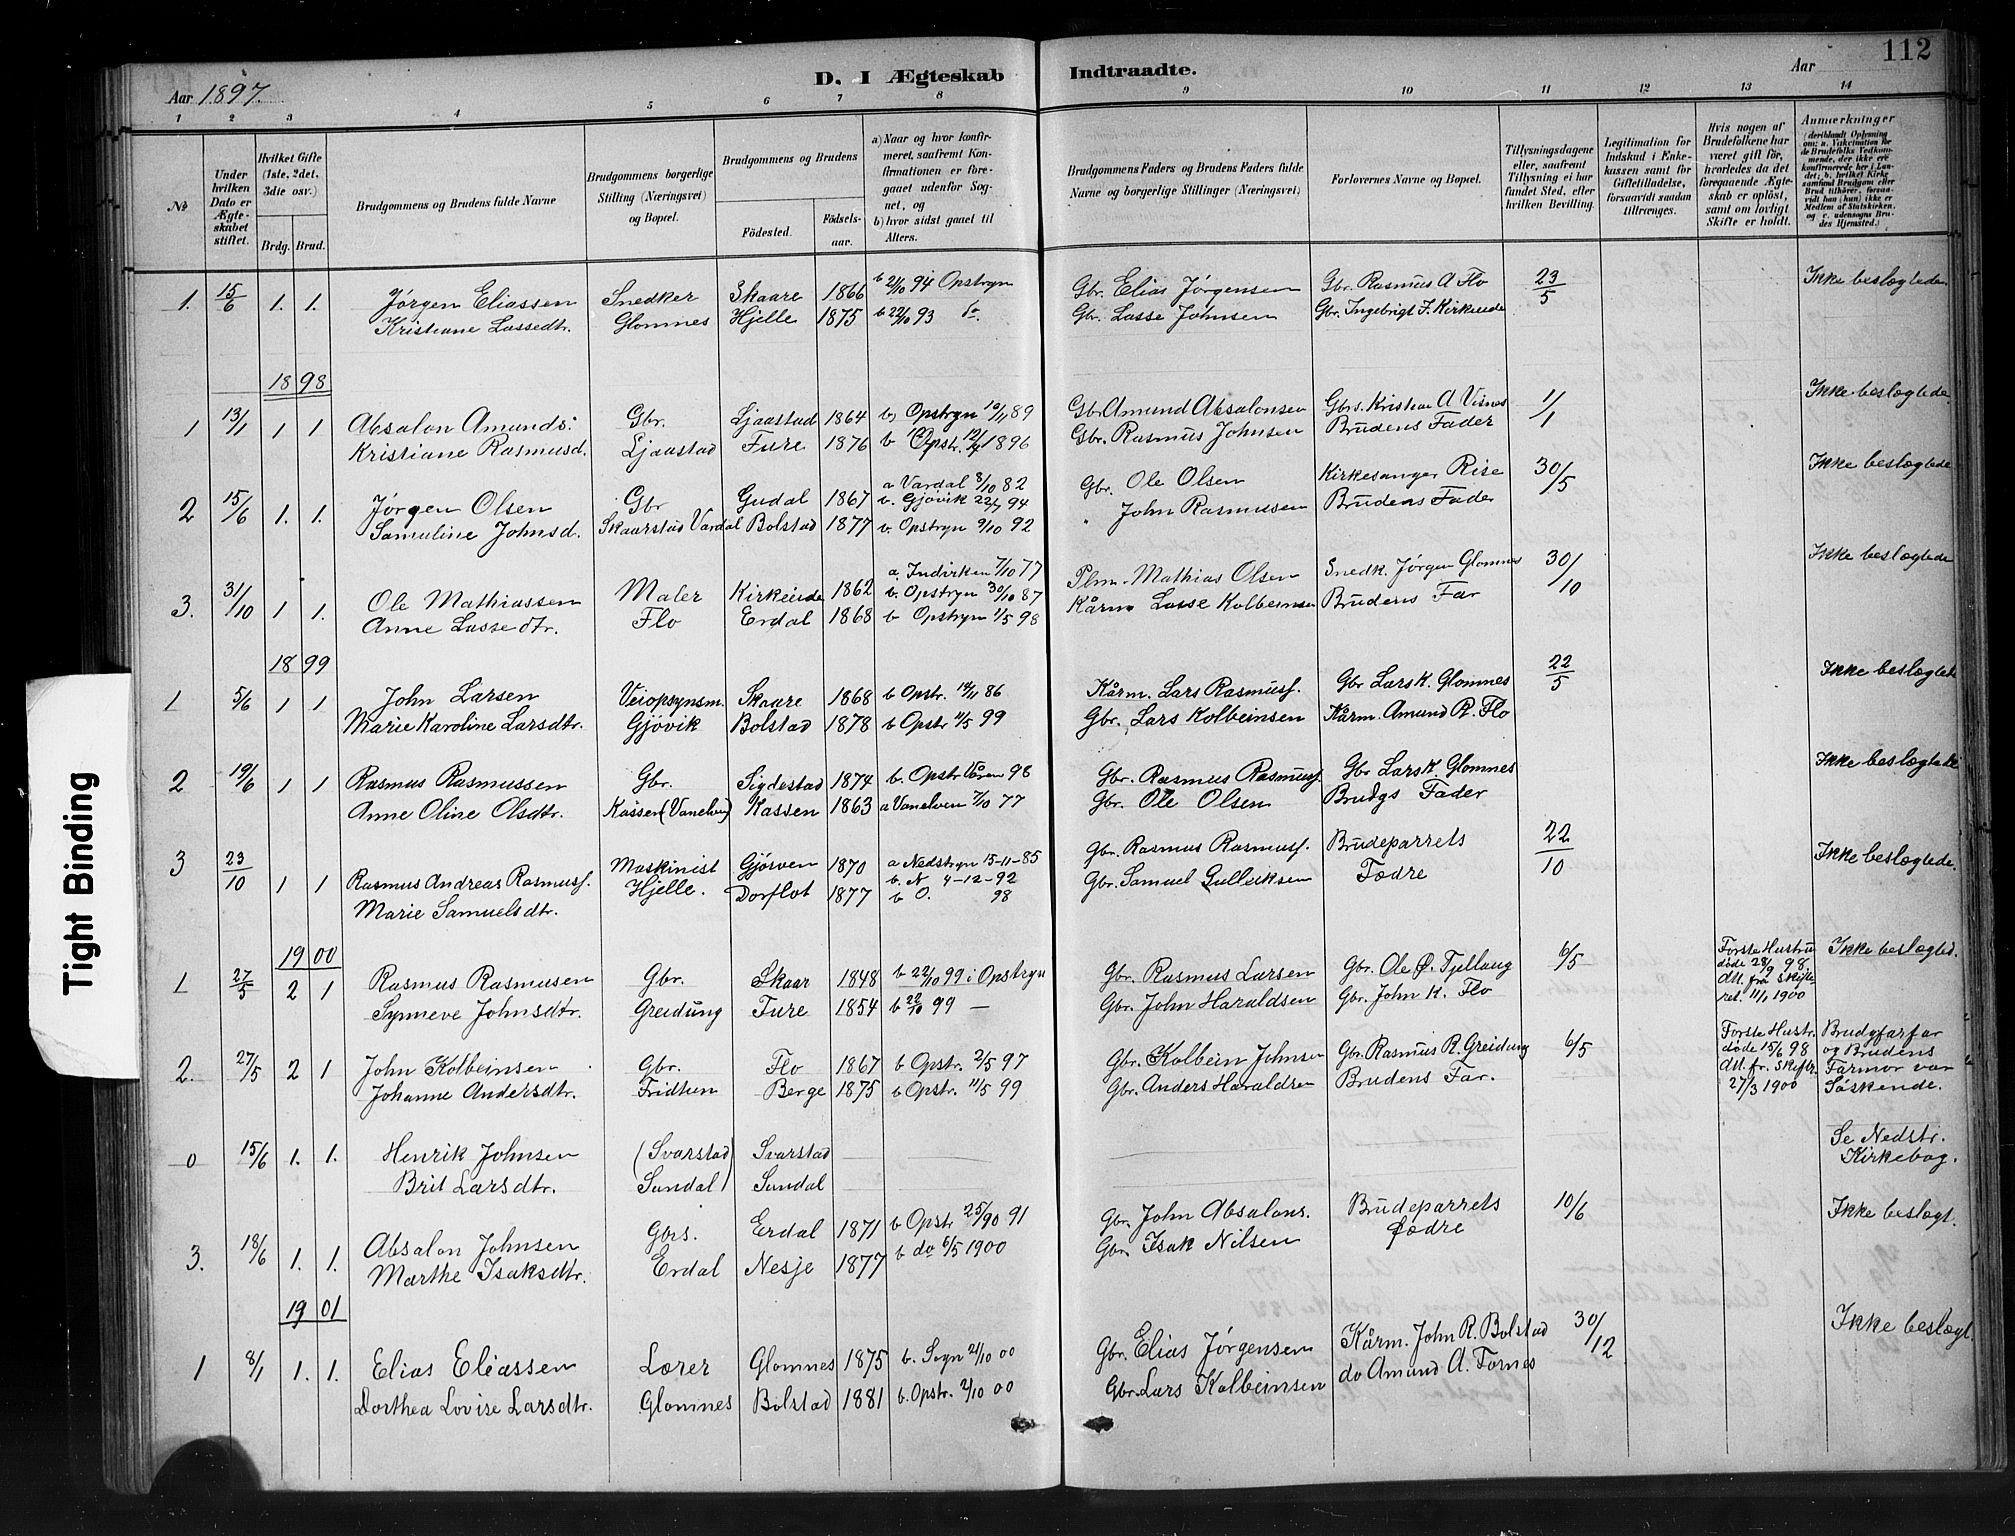 112
D. I Ægteskab Indtraadte.
Aar 1897.
Aar
1 2 3 4 5 6 7 8 9 10 11 12 13 14
No
Under hvilken Dato er Ægteskabet stiftet.
Hvilket Gifte (1ste, 2det, 3die osv.)
Brdg. Brud.
Brudgommens og Brudens fulde Navne
Brudgommens borgerlige Stilling (Næringsvei) og Bopæl.
Brudgommens og Brudens
Fødested.
Fødselsaar.
a) Naar og hvor konfirmeret, saafremt Konfirmationen er foregaaet udenfor Sognet, og
b) hvor sidst gaaet til Alters.
Brudgommens Faders og Brudens Faders fulde Navne og borgerlige Stillinger (Næringsvei)
Forlovernes Navne og Bopæl.
Tillysningsdagene eller, saafremt Tillysning ei har fundet Sted, efter hvilken Bevilling.
Legitimation for Indskud i Enkekassen samt for Giftetilladelse, forsaavidt saadan tiltrænges.
Hvis nogen af Brudefolkene har været gift før, hvorledes da det foregaaende Ægteskab er opløst, samt om lovligt Skifte er holdt.
Anmærkninger
(deriblandt Oplysning om: a. Vakcination for de Brudefolks Vedkommende, der ikke ere konfirmerede her i Landet; b. hvilket Kirkesamfund Brudgom eller Brud tilhører, forsaavidt han (hun) ikke er Medlem af Statskirken, og c. udensogns Brudes Hjemsted.)
1. 15/6 1. 1. Jørgen Eliassen Snedker Skaare 1866 b 21/10 94 Opstryn Gbr. Elias Jørgensen Gbr. Rasmus A Flo 23/5 Ikke beslægtede
Kristiane Lassedtr. Glomnes Hjelle 1875 b 22/10 93 do. Gbr. Lasse Johnsen Gbr. Ingebrigt J. Kirkeeide
1898
1 13/1 1 1 Absalon Amunds: Gbr. Ljaastad 1864 b) Opstryn 10/11 89 Gbr Amund Absalonsen Gbrs. Kristen A Visnes 1/1 Ikke beslægtede
Kristiane Rasmusd. Ljaastad Fure 1876 b Opstr. 12/7 1896 Gbr. Rasmus Johnsen Brudens Fader
2 15/6 1. 1. Jørgen Olsen Gbr Gudal 1867 a Vardal 8/10 82 b. Gjøvik 22/7 94 Gbr. Ole Olsen Kirkesanger Rise 30/5 Ikke beslægtede
Samuline Johnsd. Skaarstad Vardal Bolstad 1877 b. Opstryn 9/10 92 " John Rasmusen Brudens Fader
3. 31/10 1 1. Ole Mathiassen Maler Kirkeeide 1862 a. Indviken 7/10 77 b. Opstryn 30/10 87 Plm. Mathias Olsen Snedk. Jørgen Glomnes 30/10 Ikke beslægtede
Anne Lassedtr. Flo Erdal 1868 b Opstryn 1/5 98 Kårm Lasse Kolbeinsen Brudens Far
1899
1 5/6 1 1 John Larsen Veiopsynsm. Skaare 1868 b Opstr. 14/11 86 Kårm. Lars Rasmusf. Gbr Lars K. Glomnes 22/5 Ikke beslægtede
Marie Karoline Larsdtr. Gjövik Bolstad 1878 b Opstr 11/5 99 Gbr. Lars Kolbeinsen Kårm. Amund R. Flo
2 19/6 1 1 Rasmus Rasmussen Gbr. Sigdestad 1874 b. Opstr Våren 98 Gbr. Rasmus Rasmusf. Gbr Lars K. Glomnes Ikke beslægtede
Anne Oline Olsdtr. Kåssen (Vanelven) Kassen 1863 a Vanelven 7/10 77 Gbr. Ole Olsen Brudgs Fader
3 23/10 1 1 Rasmus Andreas Rasmusf. Maskinist Gjörven 1870 a Nedstryn 15-11-85 b. N 4-12-92 Gbr. Rasmus Rasmusf. Brudeparrets 22/10 Ikke beslægtede.
Marie Samuelsdtr. Hjelle. Dorflot 1877 b O. 98 Gbr. Samuel Gulleiksen Fædre
1900
1 27/5 2 1 Rasmus Rasmusen Gbr. Skaar 1848 b 22/10 99 i Opstryn Gbr. Rasmus Larsen Gbr. Ole Ø. Tjellaug 6/5 Første Hustru døde 28/9 98. Att. fra Skifteret. 11/1 1900 Ikke beslægted.
Synneve Johnsdtr. Greidung Fure 1854 b 22/10 99 — Gbr. John Haraldsen Gbr. John K. Flo
2. 27/5 2 1 John Kolbeinsen Gbr. Flo 1867 b Opstr. 2/5 97 Gbr. Kolbein Johnsen Gbr. Rasmus R. Greidung 6/5 Første Hustr. døde 15/6 98 Att. fr. Skiftr. 27/3 1900 Brudgfarfar og Brudens Farmor var Söskende.
Johanne Andersdtr. Fridtun Berge 1875 b Opstr. 11/5 99 Gbr. Anders Haraldsen Brudens Far.
0 15/6 1. 1. Henrik Johnsen (Svarstad) Svarstad Se Nedstr. Kirkebog.
Brit Larsdtr. Sundal) Sundal
3. 18/6 1. 1. Absalon Johnsen Gbrs. Erdal 1871 b Opstr 25/90 91 Gbr. John Absalons. Brudeparrets 10/6 Ikke beslægt.
Marthe Isaksdtr. Erdal Nesje 1877 b do 6/5 1900 Gbr. Isak Nilsen Fædre
1901
1 8/1 1. 1. Elias Eliassen Lærer Glomnes 1875 b. Sogn 21/10 00 Gbr. Elias Jørgensen Kårm. John R. Bolstad 30/12 Ikke beslægt.
Dorthea Lovise Larsdtr. Glomnes Bolstad 1881 b. Opstr. 2/10 00 Gbr. Lars Kolbeinsen do Amund A. Fornes
Tight Binding